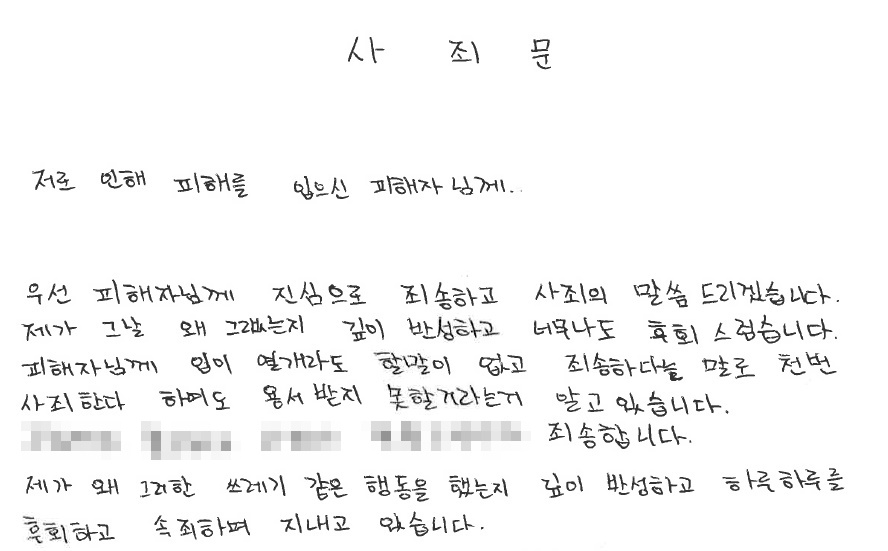 사 죄 문
저로 인해 피해를 입으신 피해자님께..
우선 피해자님께 진심으로 죄송하고 사죄의 말씀 드리겠습니다.
제가 그날 왜 그랬는지 깊이 반성하고 너무나도 후회 스럽습니다.
피해자님께 입이 열개라도 할말이 없고 죄송하다는 말로 천번
사죄한다 하여도 용서 받지 못할거라는거 알고 있습니다.
죄송합니다.
제가 왜 그러한 쓰레기 같은 행동을 했는지 깊이 반성하고 하루하루를
후회하고 속죄하며 지내고 있습니다.